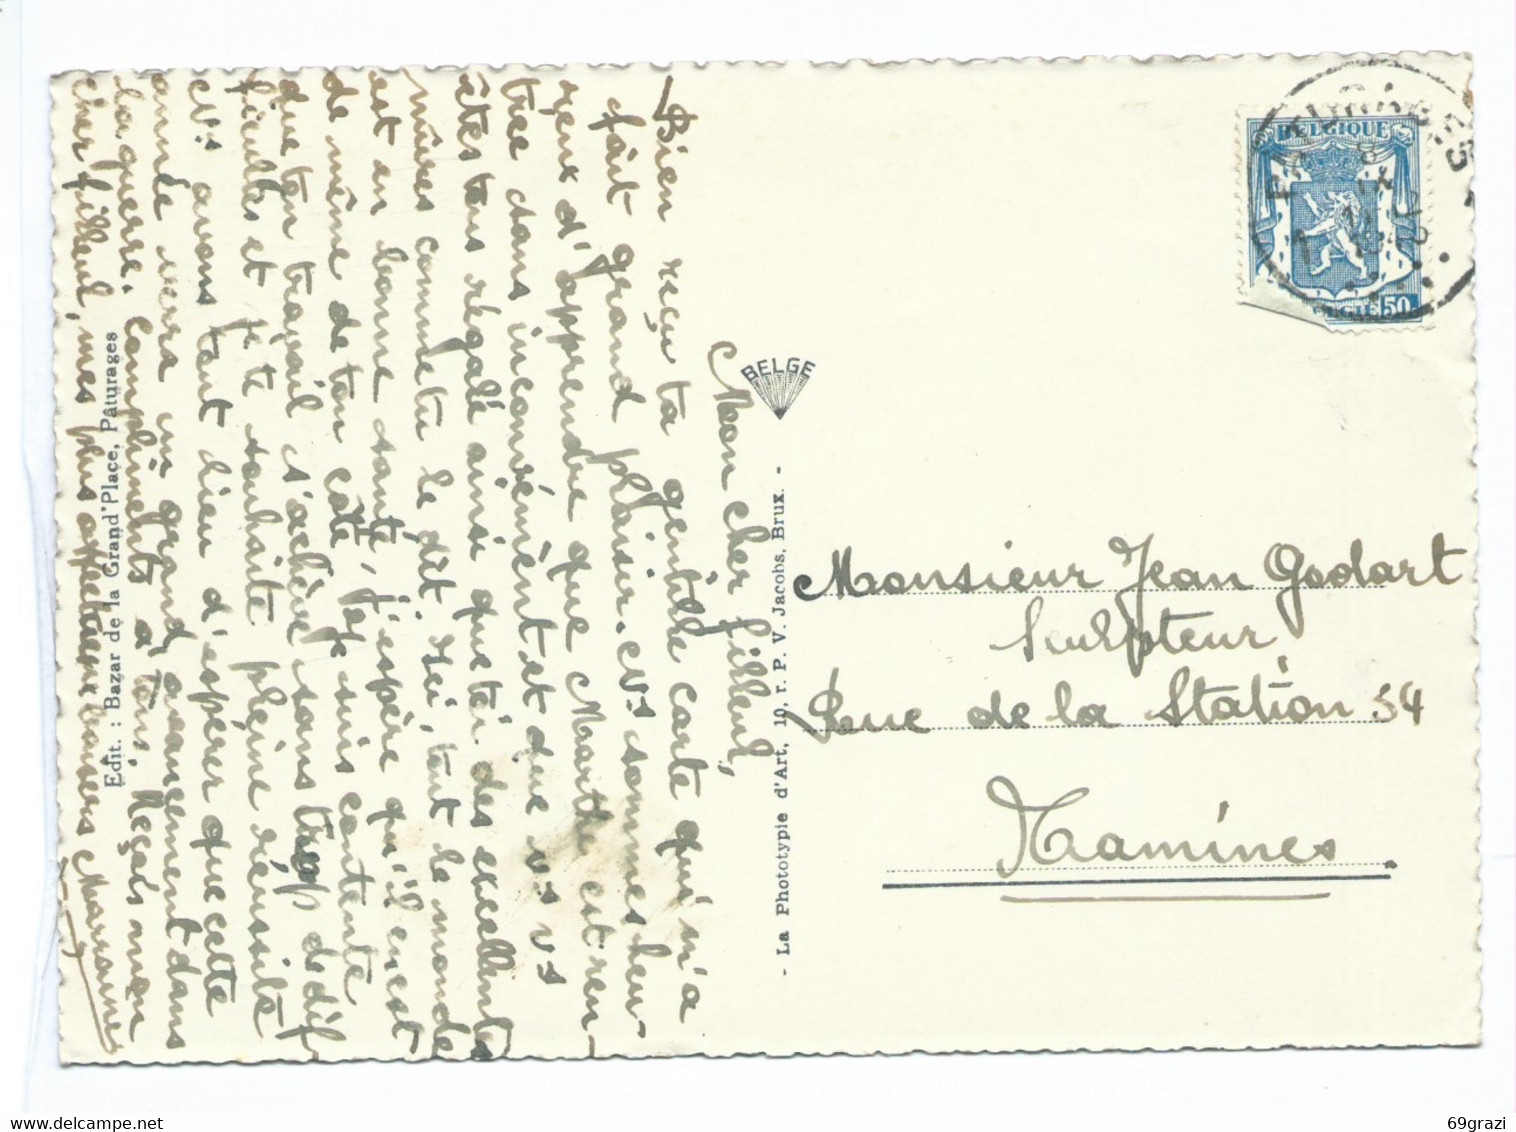 Mon cher filleul,
Bien reçu ta gentille carte qui m'a
fait grand plaisir. Ns sommes heu-
reux d'apprendre que Marthe est ren-
trée sans inconvénient et que vs vs
êtes tous régalé ainsi que toi des excellents
mûres comme tu le dit. Ici, tout le monde
est en bonne santé, j'espère qu'il en est
de même de ton côté. Je suis contente
que ton travail s'achève sans trop de dif
ficultés et je te souhaite pleine réussite
Ns avons tout lieu d'espérer que cette
année verra un grand avancement dans
la guerre. Compliments à tous, Reçois mon
cher filleul, mes plus affectueux baisers Marraine
Edit. : Bazar de la Grand'Place, Pâturages
BELGE
- La Phototypie d'Art, 10, r. P. V. Jacobs, Brux. -
PATURAGES
BELGIQUE
50
Monsieur Jean Godart
Sculpteur
Rue de la Station 54
Tamines
69grazi